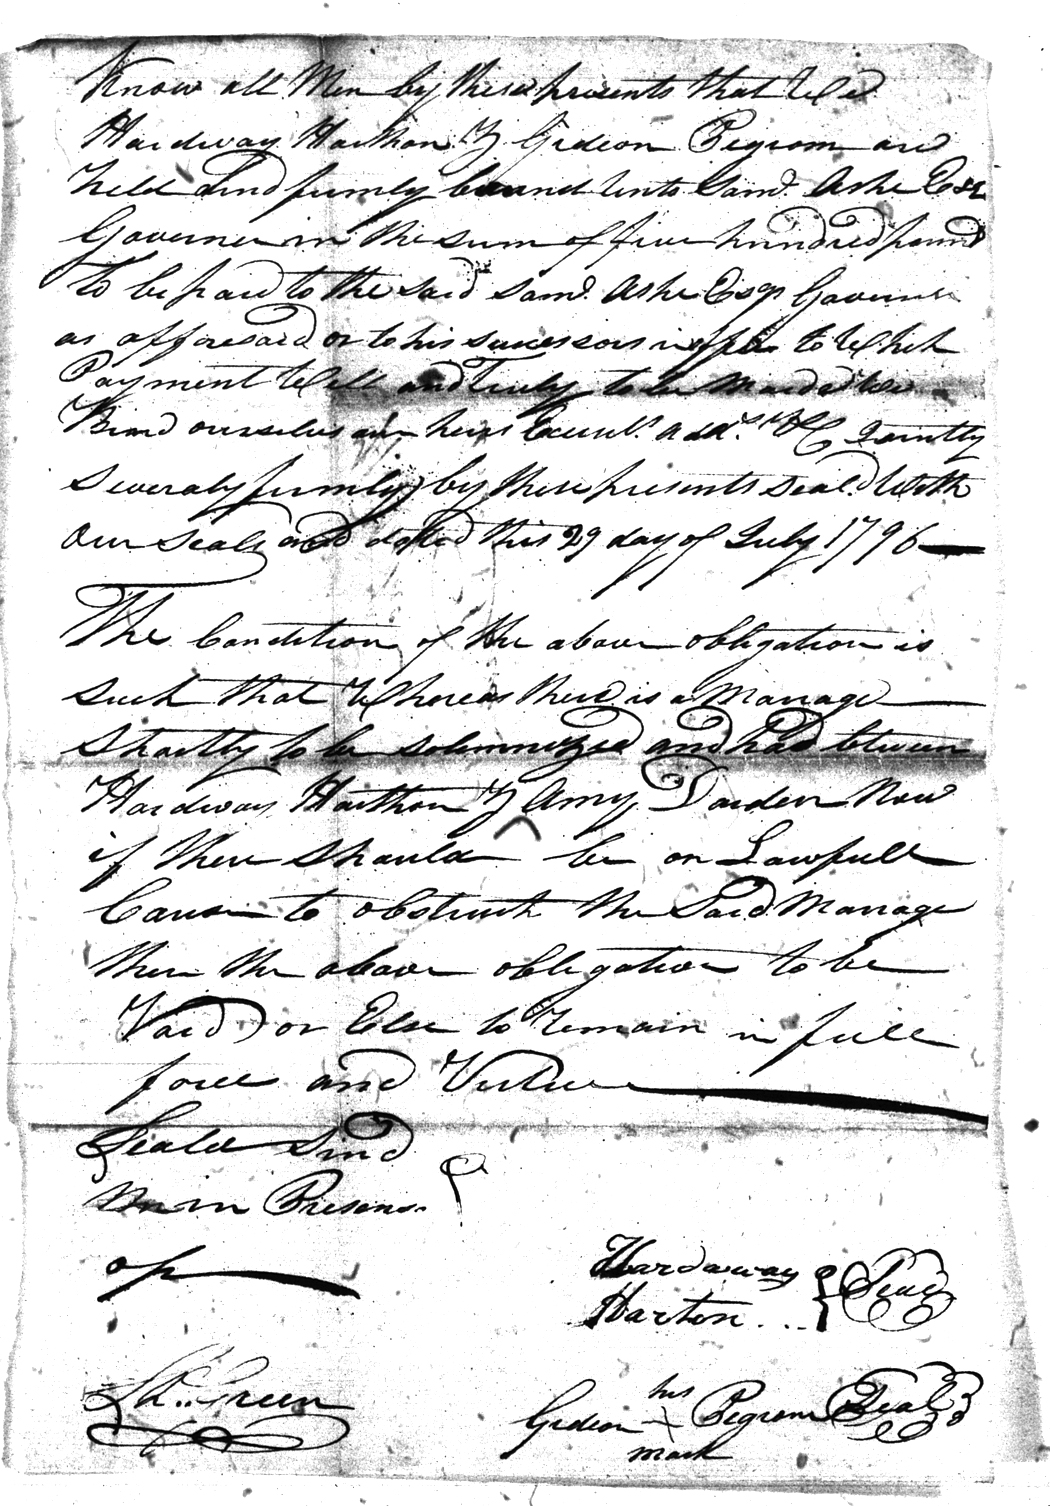 Know all Men by these presents that We
Hardway Harthon & Gideon Pegrom are
held And firmly bound unto Saml. Ashe Esqr
Governer in the sum of five hundred pound
to be paid to the said Saml. Ashe Esqr Governer
as afforesaid or to his successors in offic to Which
Payment Well and Truly to be Maid We
Bind ourselves our heirs Execurs. Adm. &C Jointly
Severaly firmly by these presents Seald. With
Our Seals and dated this 29 day of July 1796
The Condition of the above obligation is
Such that Whereas there is a Marrage
Shortly to be Solemnized and had between
Hardway Harthon & Amy Darden Now
if there should be on Lawfull
Cause to obstruct the Said Marrage
then the above obligation to be
Void or Else to remain in full
force and Virtue
Seald And
in Presens
of
Hardaway
Harton
Seal
Green
Gideon his X mark Pegrom Seal